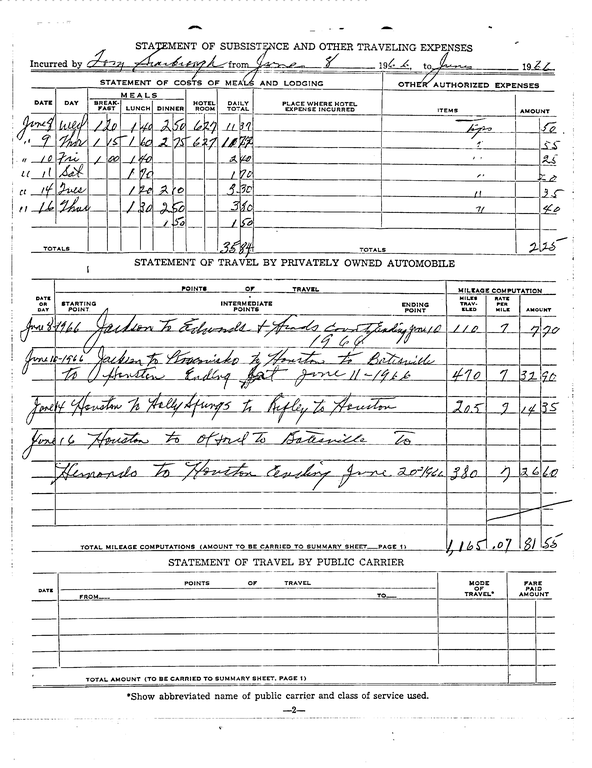 STATEMENT OF SUBSISTENCE AND OTHER TRAVELING EXPENSES
Incurred by Tom Scarbrough from June 8 1966, to June 1966
STATEMENT OF COSTS OF MEALS AND LODGING OTHER AUTHORIZED EXPENSES
DATE DAY MEALS BREAKFAST LUNCH DINNER HOTEL ROOM DAILY TOTAL PLACE WHERE HOTEL EXPENSE INCURRED ITEMS AMOUNT
Wed 1 20 1 40 2 50 6 27 11 37 tips 50
" 9 Thur 1 15 1 60 2 75 6 27 55
" 10 Fri 1 00 1 40 2 40 " 25
" 11 Sat 1 70 1 70 "
" 14 Tues 1 20 2 10 3 30 " 35
" 16 Thur 1 30 2 50 3 80 " 40
1 50 1 50
TOTALS 35 84 TOTALS 2 25
STATEMENT OF TRAVEL BY PRIVATELY OWNED AUTOMOBILE
POINTS OF TRAVEL MILEAGE COMPUTATION
DATE OR DAY STARTING POINT INTERMEDIATE POINTS ENDING POINT MILES TRAVELED RATE PER MILE AMOUNT
June 8-1966 Jackson to Edwards & Hinds County Ending June 10 110 7 7 70
1966
June 10-1966 Jackson to Kosciusko to Houston to Batesville
to Houston Ending Sat June 11-1966 470 7 32 90
June 14 Houston to Holly Springs to Ripley to Houston 205 7 14 35
June 16 Houston to Oxford to Batesville to
Hernando to Houston Ending June 20-1966 380 7 26 60
TOTAL MILEAGE COMPUTATIONS (AMOUNT TO BE CARRIED TO SUMMARY SHEET PAGE 1) 1,165 .07 81 55
STATEMENT OF TRAVEL BY PUBLIC CARRIER
DATE POINTS OF TRAVEL MODE OF TRAVEL* FARE PAID AMOUNT
FROM TO
TOTAL AMOUNT (TO BE CARRIED TO SUMMARY SHEET, PAGE 1)
*Show abbreviated name of public carrier and class of service used.
—2—